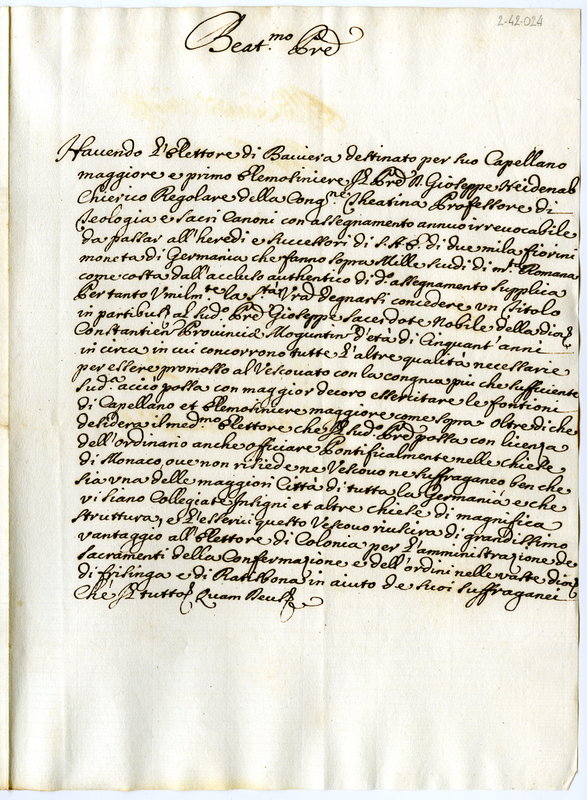 2-42-024
Beat.mo Pre
Havendo l'Elettore di Baviera destinato per suo Capellano
maggiore e primo Elemosiniere il Pre D. Gioseppe Heidenab
Chierico Regolare della Cong.ne Theatina Professore di
Teologia e sacri Canoni con assegnamento annuo irrevocabile
da passar all'heredi e successori di S.A.E. di due mila fiorini
moneta di Germania che fanno sopra Mille scudi di m.ta Romana
come costa dall'accluso authentico di d.o assegnamento supplica
Per tanto Umilm.te la S.tà V.ra degnarsi concedere un Titolo
in partibus al sud.o Pre Gioseppe Sacerdote Nobile della dioc.
Constantien Provincia Moguntin d'età di Cinquant'anni
in circa in cui concorrono tutte l'altre qualità necessarie
per essere promosso al Vescovato con la congrua più che sufficiente
sud.a acciò possa con maggior decoro essercitare le fontioni
di Capellano et Elemosiniere maggiore come sopra oltre di che
desidera il med.mo Elettore che il sud.o Pre possa con licenza
dell'ordinario anche officiare Pontificalmente nelle chiese
di Monaco, ove non risiede ne Vescovo ne suffraganeo ben che
sia una delle maggiori Città di tutta la Germania e che
vi siano Collegiate Insigni et altre chiese di magnifica
struttura, e l'esservi questo Vescovo riuscirà di grandissimo
vantaggio all'Elettore di Colonia per l'amministrazione de
sacramenti della Confermazione e dell'ordini nelle vaste dioc.
di Frisinga e di Ratisbona in aiuto de suoi suffraganei
Che il tutto Quam Deus